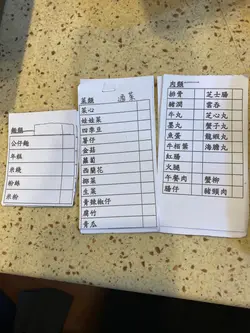 麵類
公仔麵
年糕
米綫
粉絲
米粉
菜類
菜心
娃娃菜
四季豆
薯仔
金菇
蘿蔔
西蘭花
椰菜
生菜
青辣椒仔
腐竹
青瓜
肉類
排骨 芝士腸
豬潤 雲吞
牛丸 芝心丸
墨丸 蟹子丸
魚蛋 龍蝦丸
牛柏葉 海膽丸
紅腸
火腿
午餐肉 蟹柳
腸仔 豬頸肉